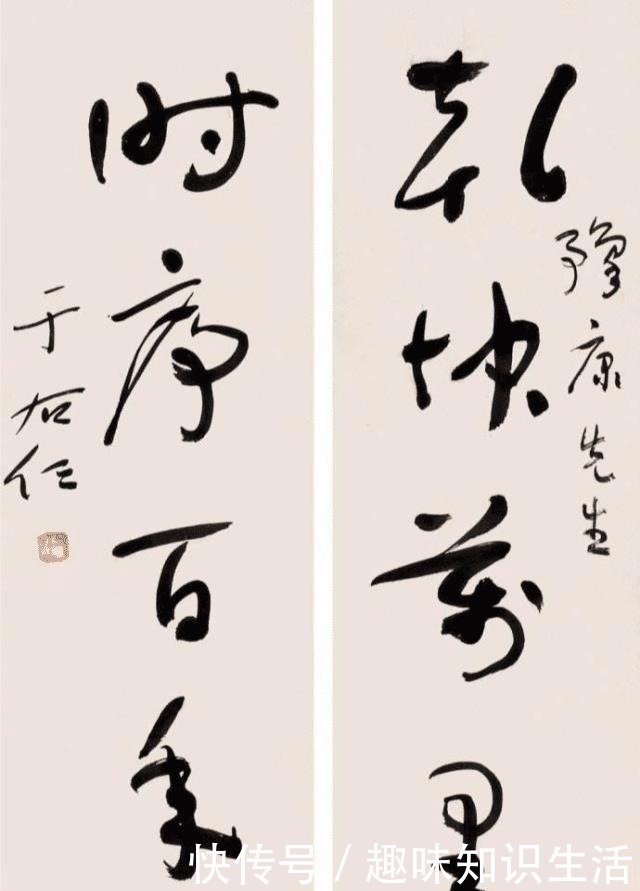 乾坤萬里
豫康先生
時序百年
于右任
快传号 / 趣味知识生活